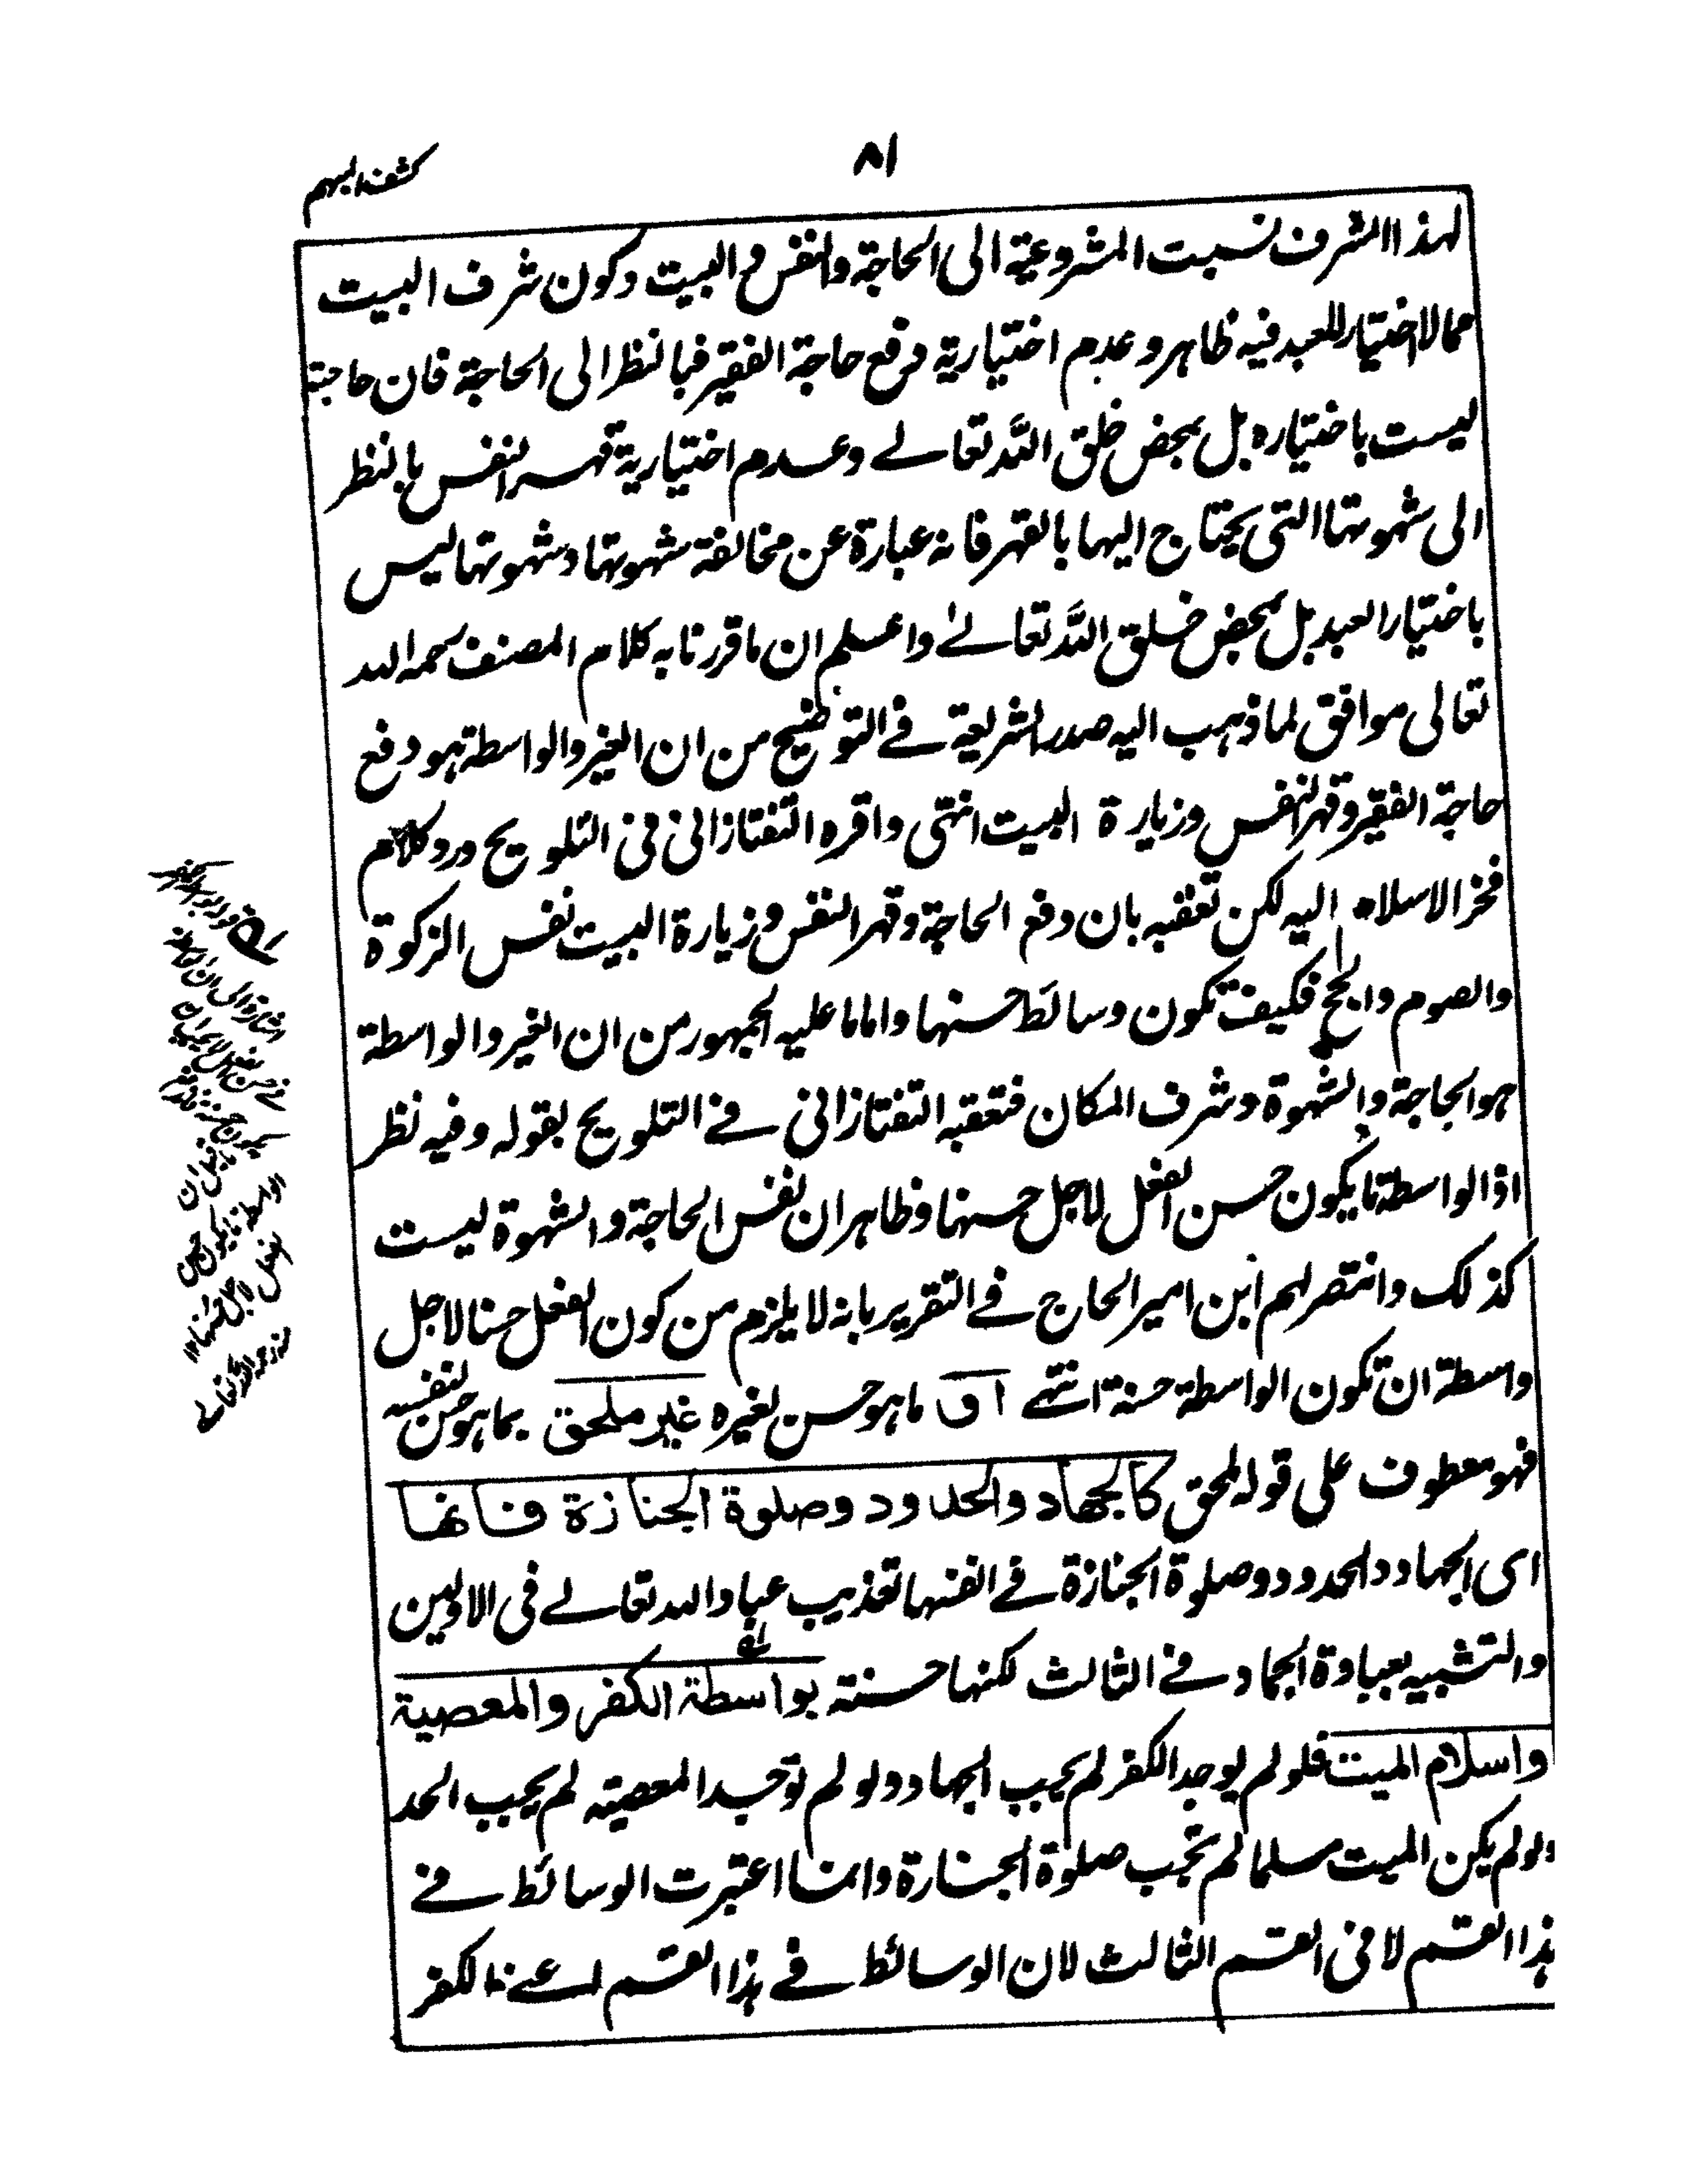 ٨١
كشف المبهم
لهذا الشرف نسبت المشروعية الى الحاجة والنفس والبيت وكون شرف البيت
مما لا اختيار للعبد فيه ظاهر وعدم اختيارية دفع حاجة الفقير فبالنظر الى الحاجة فان حاجته
ليست باختياره بل بمحض خلق الله تعالے وعدم اختيارية قهر النفس بالنظر
الى شهوتها التى يحتاج اليها بالقهر فانه عبارة عن مخالفة شهوتها وشهوتها ليس
باختيار العبد بل بمحض خلق الله تعالےٰ واعلم ان ما قررنا به كلام المصنف رحمه الله
تعالى موافق لما ذهب اليه صدر الشريعة فے التوضيح من ان الغير والواسطة هو دفع
حاجة الفقير وقهر النفس وزيارة البيت انتهى واقره التفتازانى فى التلويح ورد كلام
فخر الاسلام اليه لكن تعقبه بان دفع الحاجة وقهر النفس وزيارة البيت نفس الزكوة
والصوم والحج فكيف تكون وسائط حسنها واما ما عليه الجمهور من ان الغير والواسطة
هو الحاجة والشهوة وشرف المكان فتعقبه التفتازانى فے التلويح بقوله وفيه نظر
اذ الواسطة ما يكون حسن الفعل لاجل حسنها وظاهر ان نفس الحاجة والشهوة ليست
كذلك وانتصر لهم ابن امير الحاج فے التقرير بانه لا يلزم من كون الفعل حسنا لاجل
واسطة ان تكون الواسطة حسنة انتهے او ما هو حسن لغيره غير ملحق بما هو حسن لنفسه
فهو معطوف على قوله ملحق كالجهاد والحدود وصلوة الجنازة فانها
اى الجهاد والحدود وصلوة الجنازة فے انفسها تعذيب عباد الله تعالے فى الاولين
والتشبيه بعبادة الجماد فے الثالث لكنها حسنته بواسطة الكفر والمعصية
واسلام الميت فلو لم يوجد الكفر لم يجب الجهاد ولو لم توجد المعصية لم يجب الحد
ولو لم يكن الميت مسلما لم تجب صلوة الجنازة وانما اعتبرت الوسائط فے
هذا القسم لا فى القسم الثالث لان الوسائط فے هذا القسم اعنے الكفر